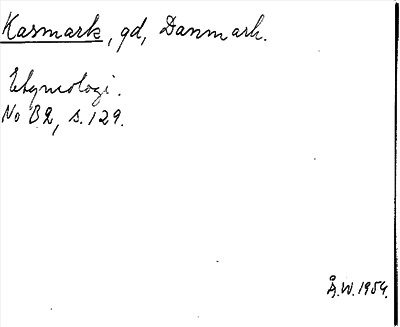 Kasmark, gd, Danmark.
Etymologi.
No B 2, s. 129.
Å.W. 1954.